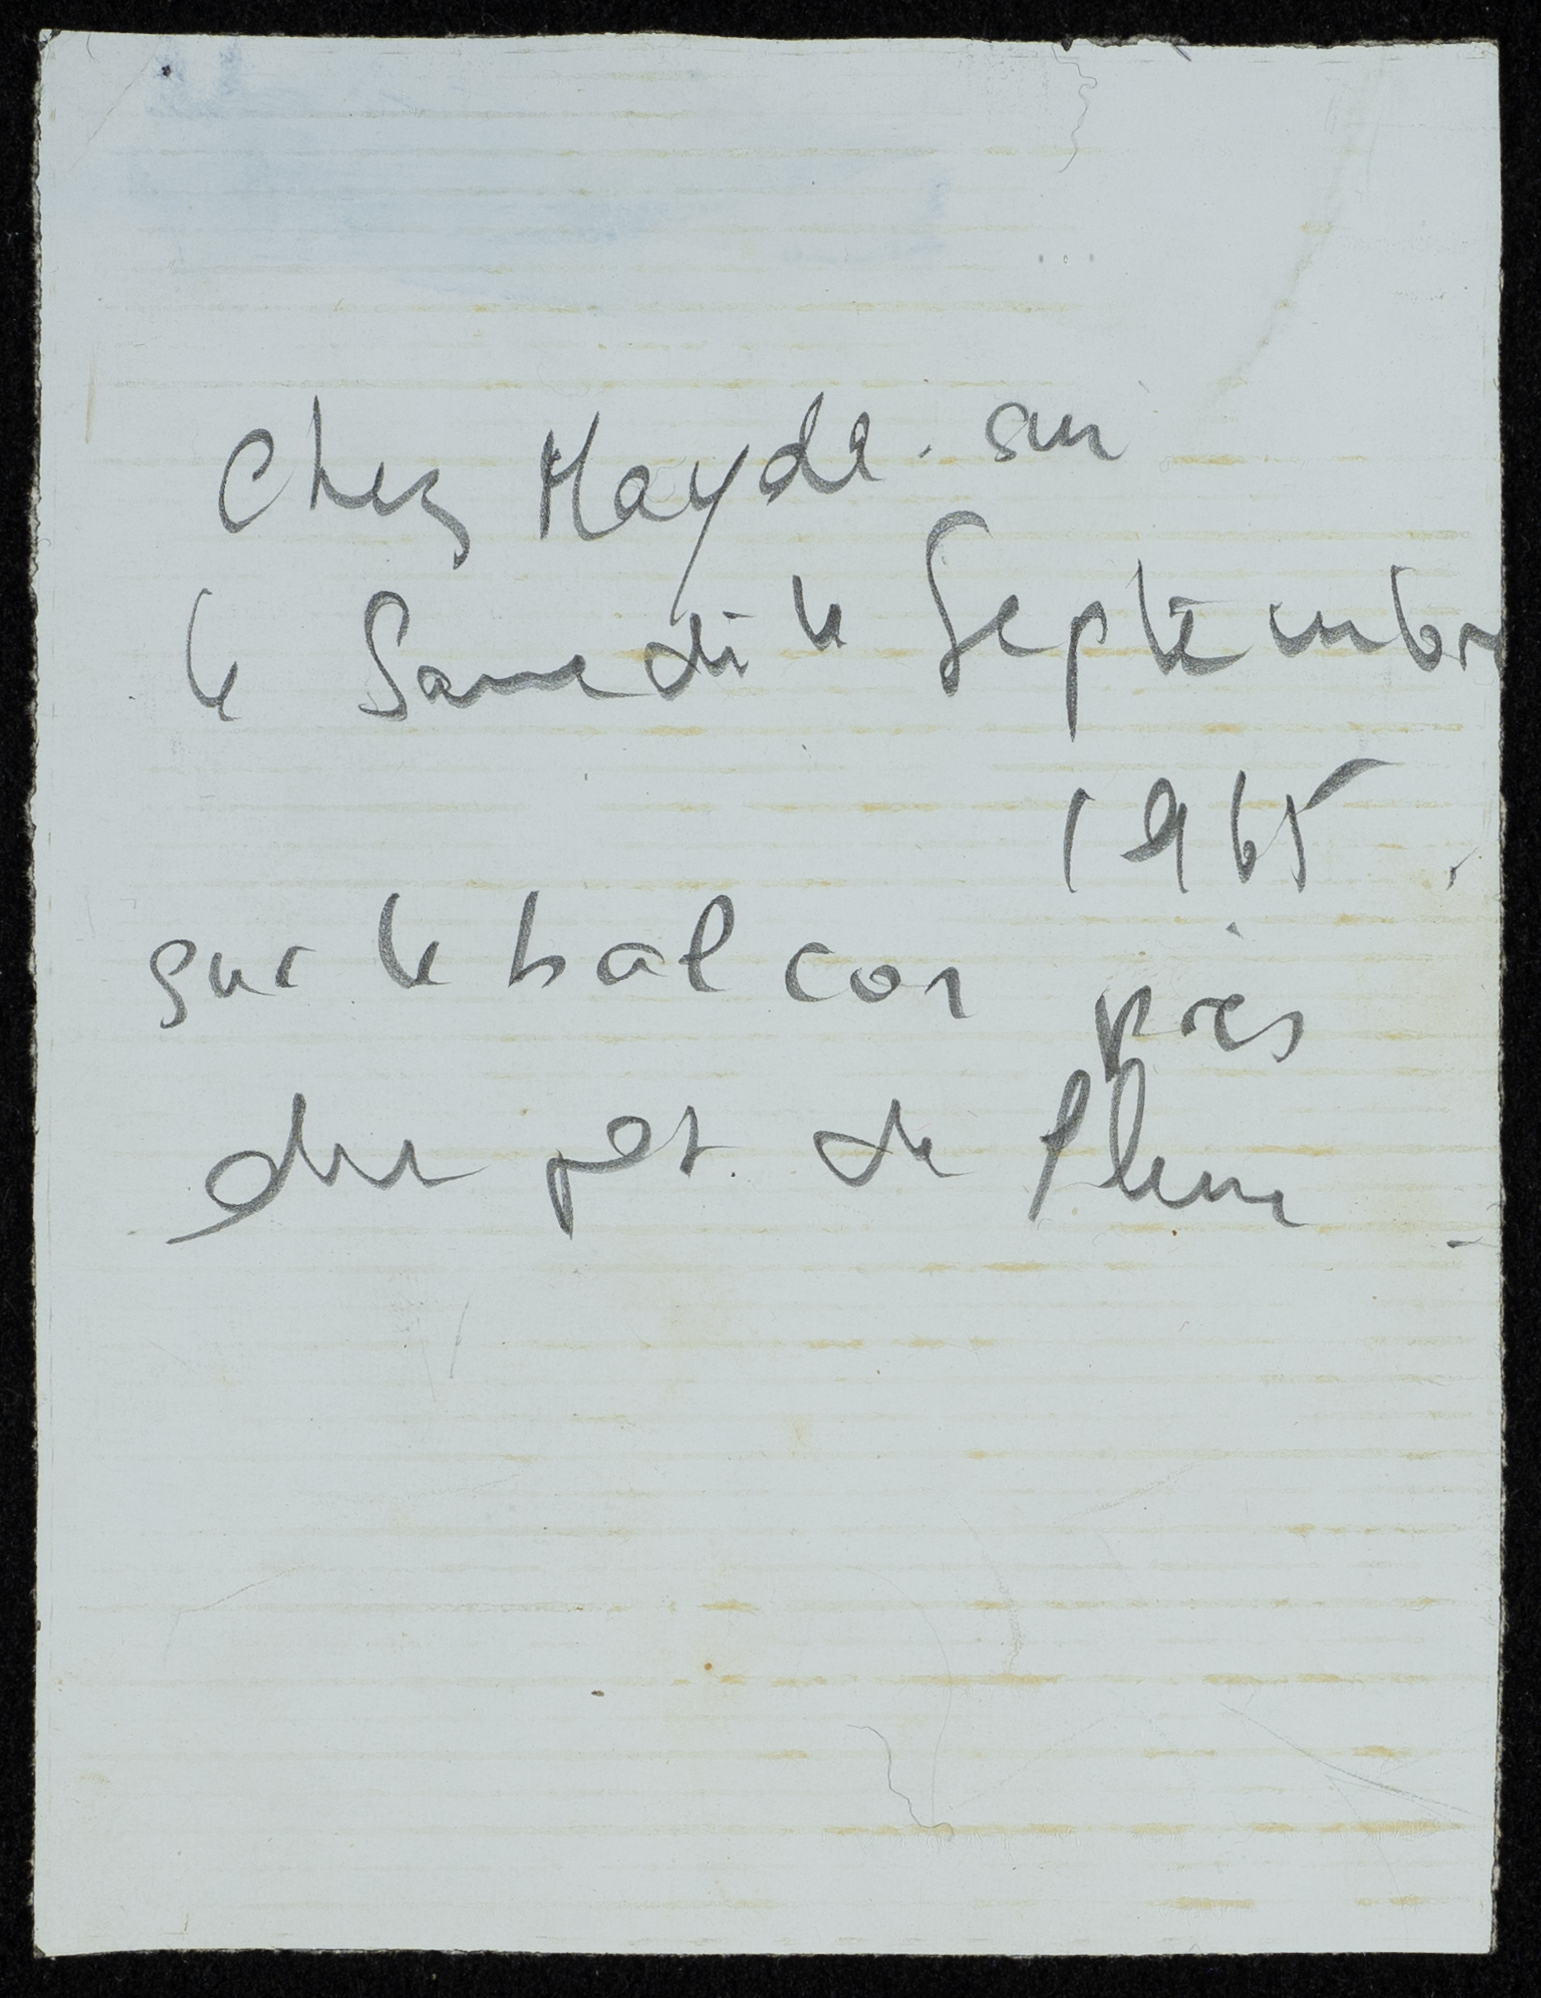 Chez Hayde. sur
le Samedi le Septembre
1965
sur le balcon près
du pot. de fleur